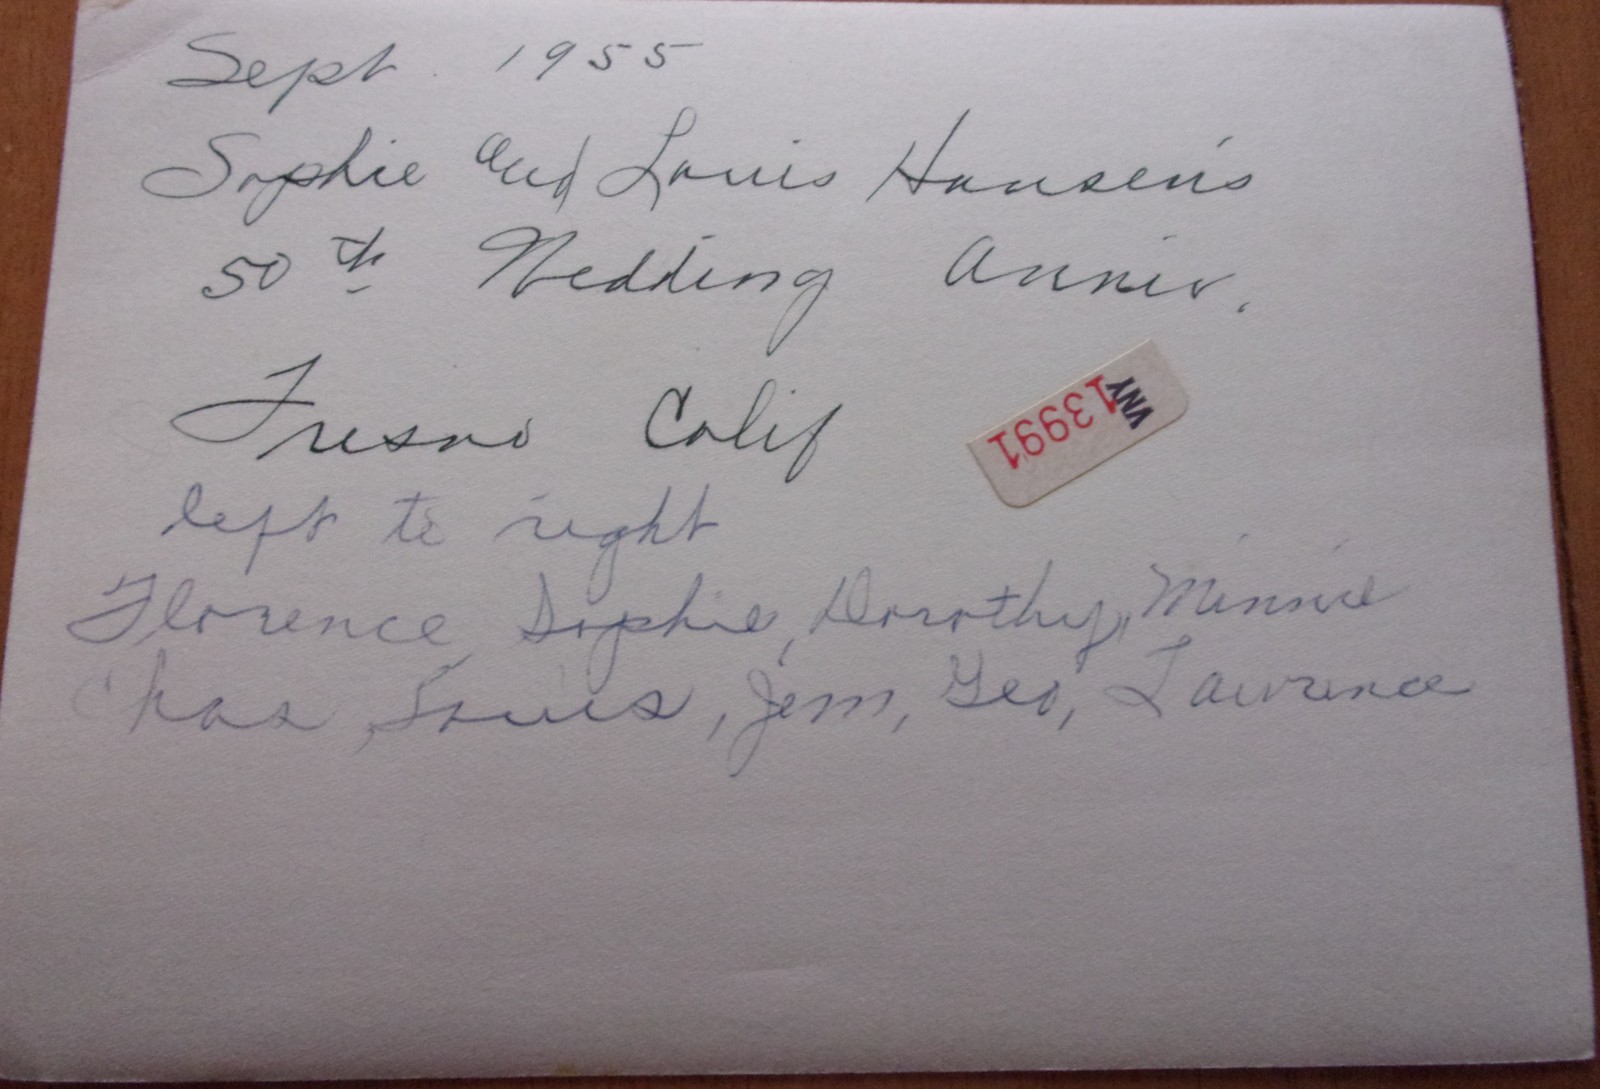 Sept. 1955
Sophie and Louis Hansen's
50th Wedding Anniv.
Fresno Calif
VNY
13991
left to right
Florence, Sophie, Dorothy, Minnie
Chas, Louis, Jem, Geo, Lawrence